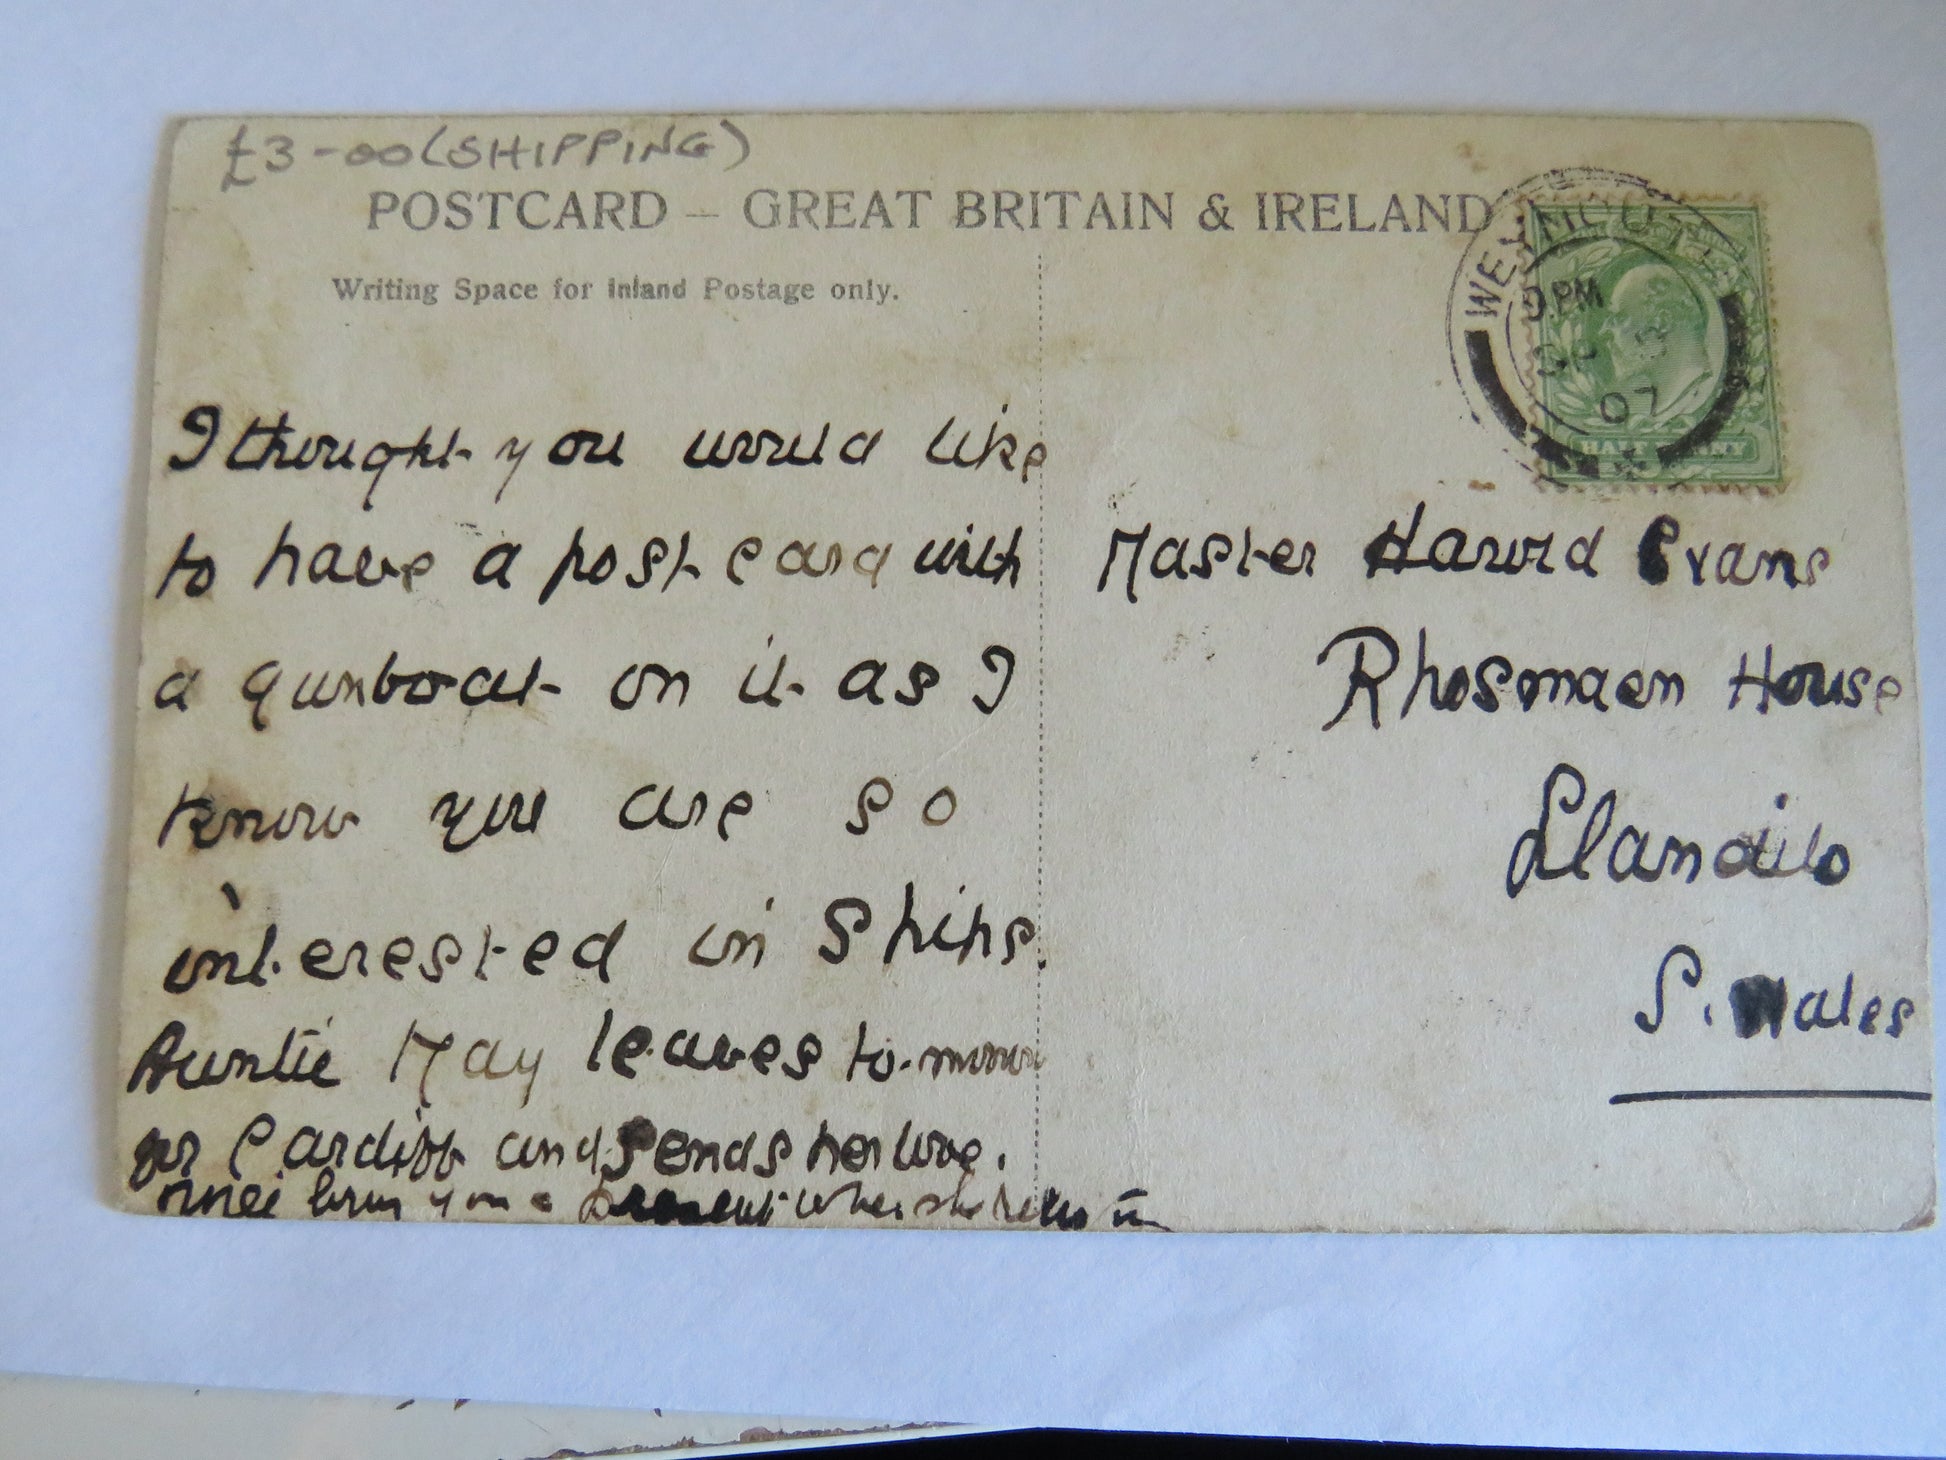 £3-00 (SHIPPING)
POSTCARD — GREAT BRITAIN & IRELAND
Writing Space for Inland Postage only.
WEYMOUTH
PM
07
HALF PENNY
I thought you would like
to have a post card with
a gunboat on it as I
know you are so
interested in Ships.
Auntie May leaves to-morrow
for Cardiff and sends her love.
bring you a present when she
Master Harold Evans
Rhosmaen House
Llandilo
S. Wales